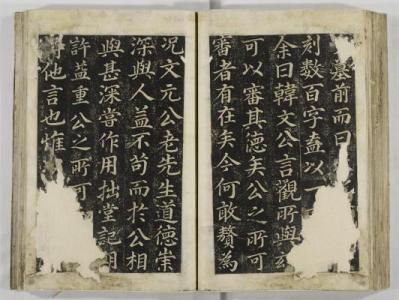 墓前而曰
刻數百字盍以一
余曰韓文公言觀所與
可以審其德矣公之所可
審者有在矣今何敢贅為
况文元公老先生道德崇
深與人益不苟而於公相
與甚深嘗作用拙堂記
許益重公之所可
他言也惟